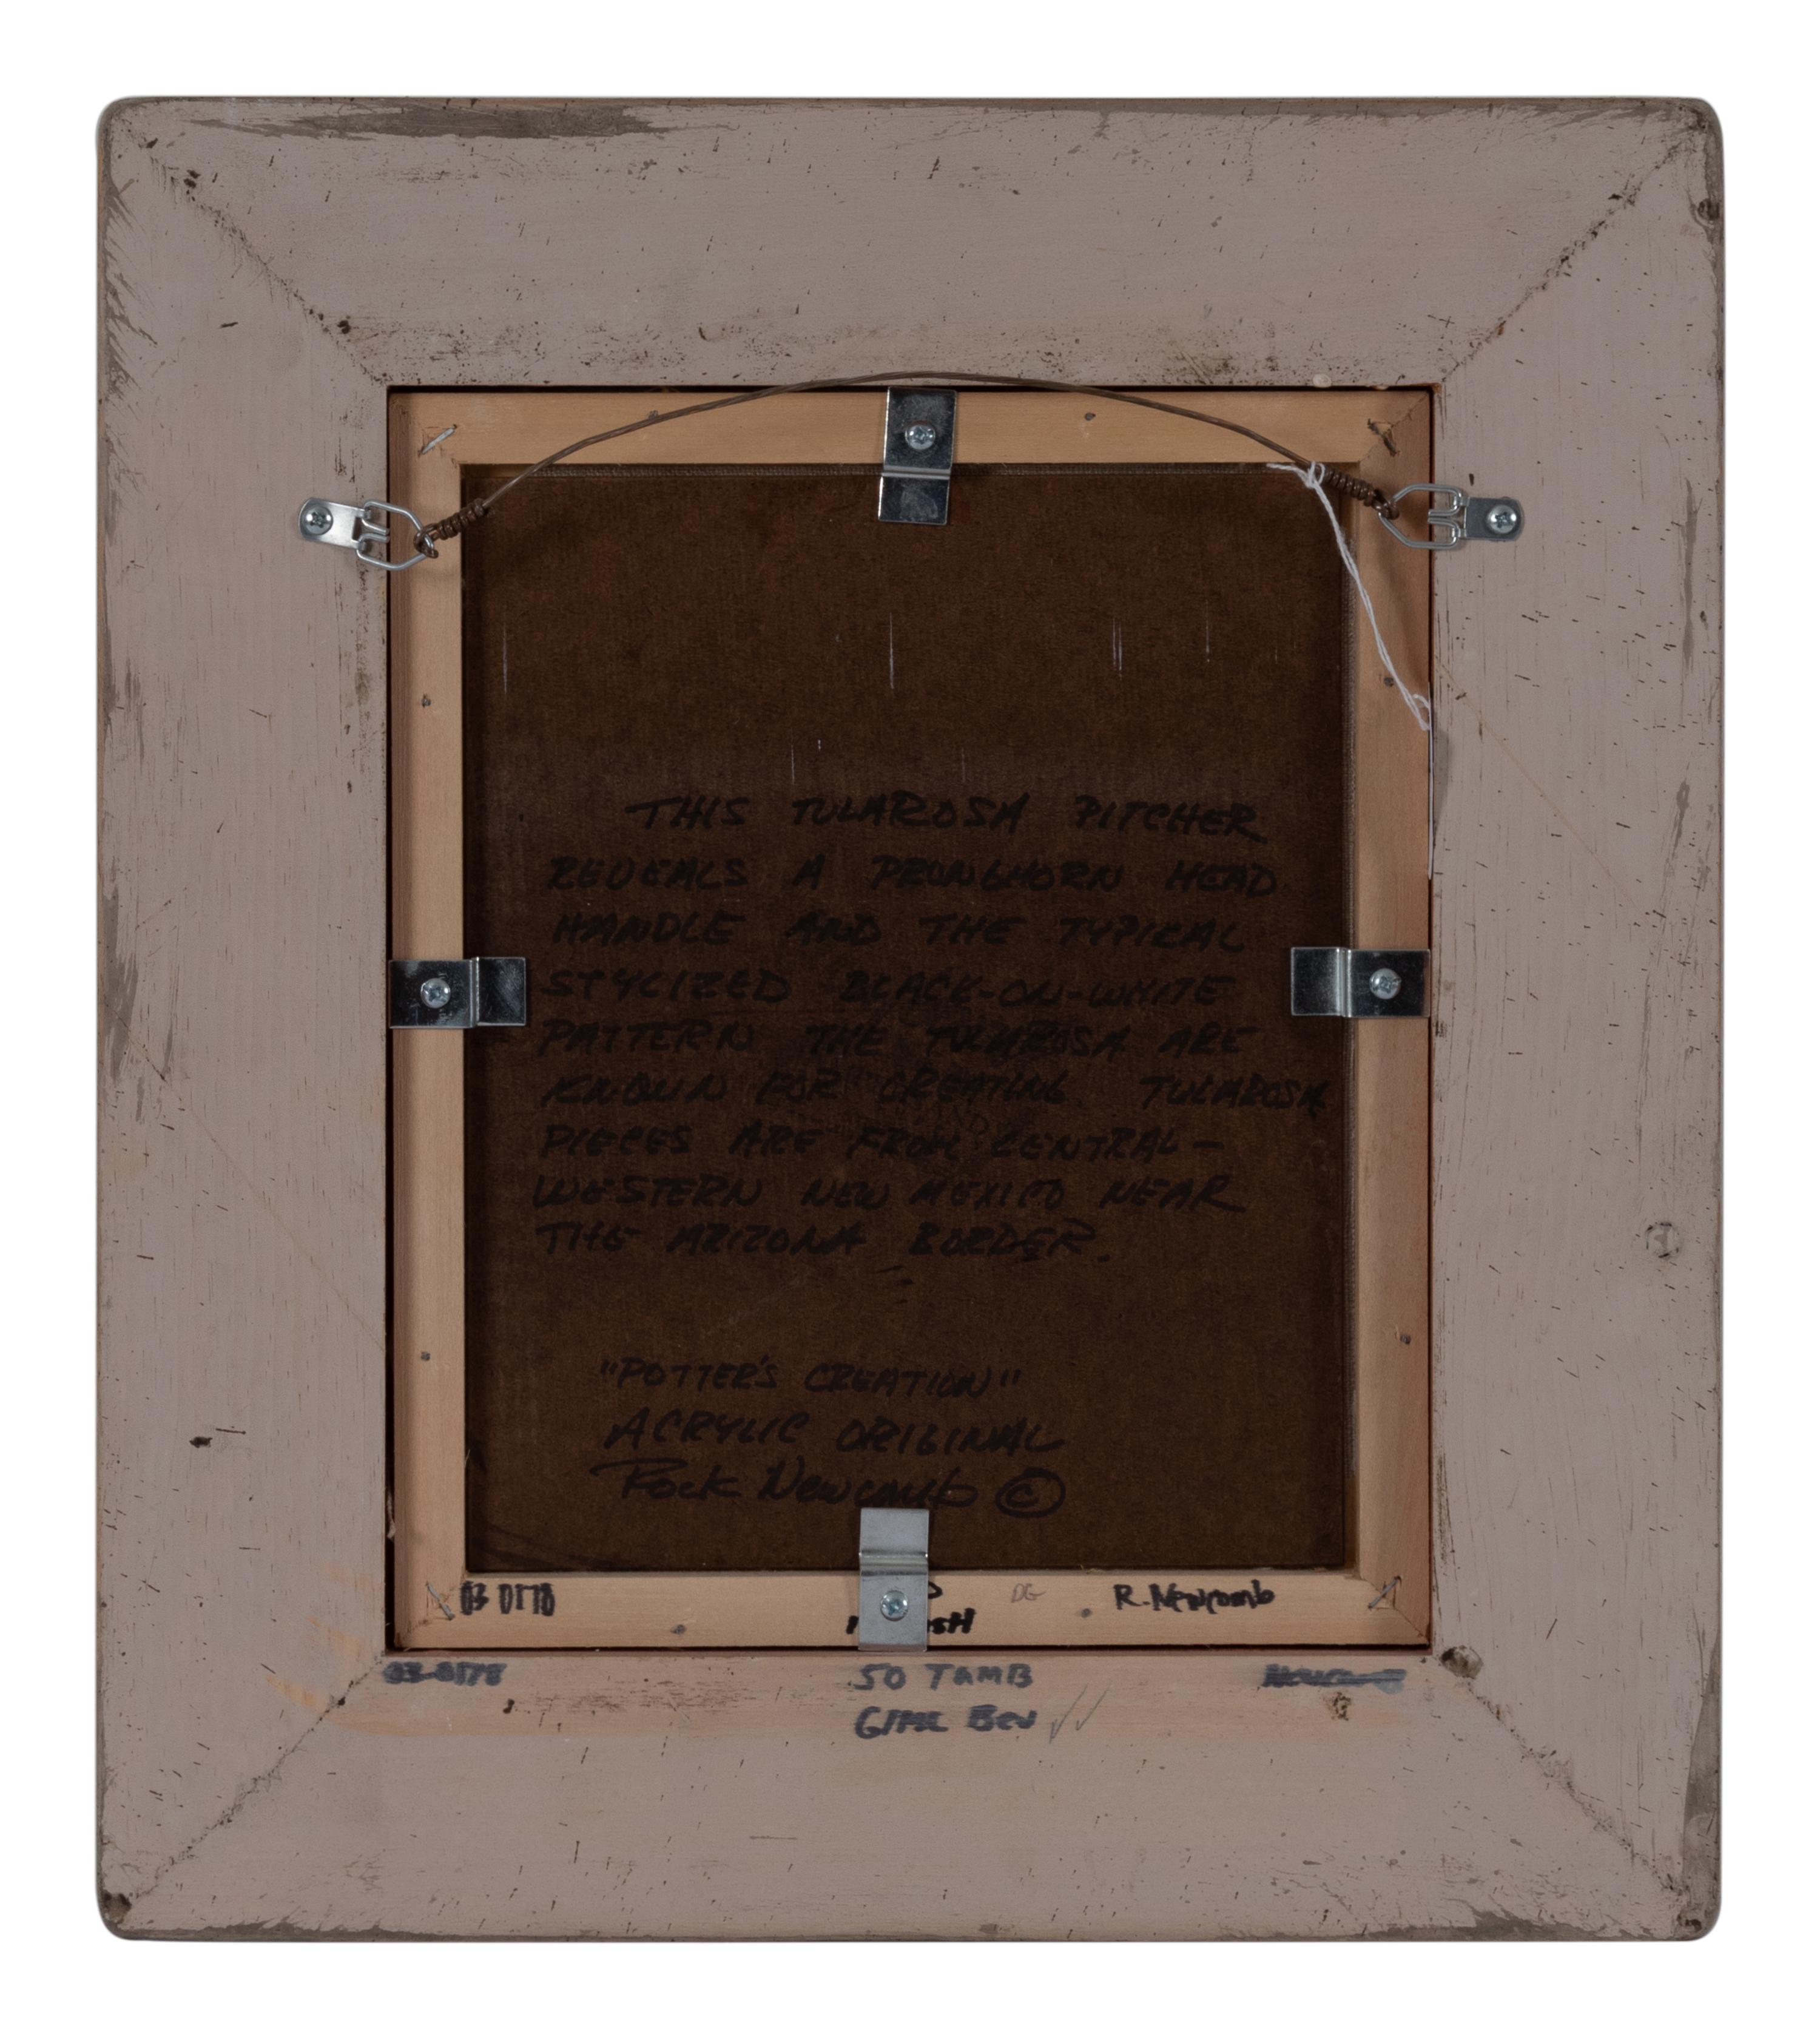 THIS TULAROSA PITCHER
REVEALS A PRONGHORN HEAD
HANDLE AND THE TYPICAL
STYLIZED BLACK-ON-WHITE
PATTERN THE TULAROSA ARE
KNOWN FOR CREATING. TULAROSA
PIECES ARE FROM CENTRAL-
WESTERN NEW MEXICO NEAR
THE ARIZONA BORDER.
"POTTER'S CREATION"
ACRYLIC ORIGINAL
Rock Newcomb ©
03 0178 DG R. Newcomb
03-0178 50 TAMB